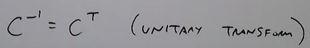 C⁻¹ = Cᵀ (UNITARY TRANSFORM)